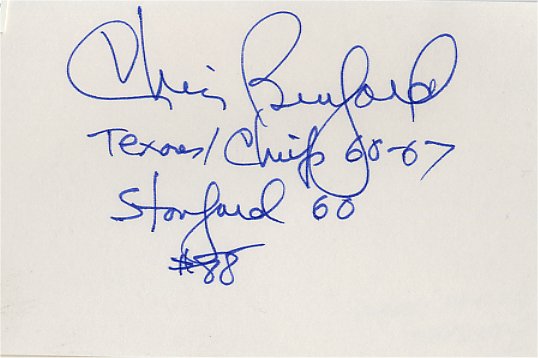 Chris Burford
Texans/Chiefs 60-67
Stanford 60
#88